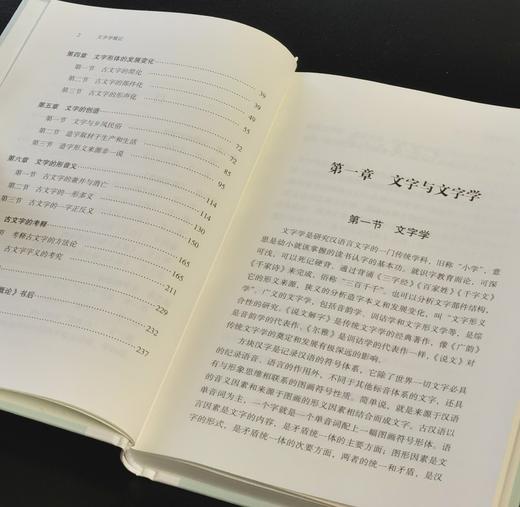 2 文字学概记
第四章 文字形体的发展变化 39
第一节 古文字的简化 39
第二节 古文字的部件化 49
第三节 古文字的形声化 55
第五章 文字的创造 72
第一节 文字与乡风民俗 72
第二节 造字取材于生产和生活 85
第三节 造字形义来源非一说 95
第六章 文字的形音义 114
一节 古文字的兼并与消亡 114
二节 古文字的一形多义 130
三节 古文字的一字正反义 150
古文字的考释 165
节 考释古文字的方法论 165
古文字字义的考究 211
229
概论》书后 232
237
第一章 文字与文字学
第一节 文字学
文字学是研究汉语言文字的一门传统学科，旧称“小学”，意
思是幼小就该掌握的读书认字的基本功。就识字教育而论，可深
可浅，可以死记硬背，通过背诵《三字经》《百家姓》《千字文》
《千家诗》来完成，俗称“三百千千”。也可以分析文字部件结构，
它的形义来源，狭义的分析造字本义和发展变化，叫“文字形义
学”。广义的文字学，包括音韵学、训诂学和文字形义学等，是综
合性的研究。《说文解字》是传统文字学的经典著作，像《广韵》
是音韵学的代表作、《尔雅》是训诂学的代表作一样，《说文》对
传统文字学的奠定和发展有极深远的影响。
方块汉字是记录汉语的符号体系，它除了世界一切文字必具
的纪录语音、语言的作用外，不同于其他标音体系的文字，还具
有与形象思维相联系的图画符号性质。简单说，就是来源于汉语
的音义因素和来源于图画的形义因素相结合而成文字。古汉语以
单音词为主，一个字就是一个单音词配上一幅图画符号形体。语
言因素是文字的内容，是矛盾统一体的主要方面；图形因素是文
字的形式，是矛盾统一体的次要方面，两者的统一和矛盾，是汉